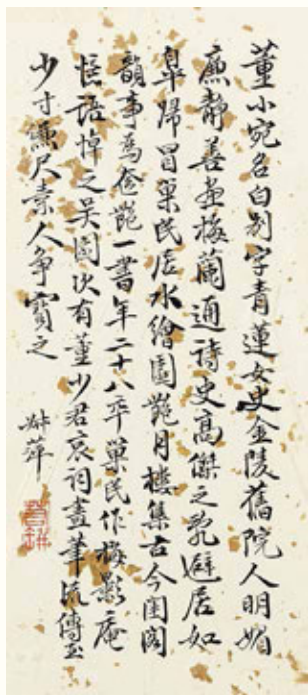 董小宛名白別字青蓮女史金陵舊院人明媚
廉靜善畫梅蘭通詩史高傑之亂避居如
皋歸冒巢民居水繪園艷月樓集古今閨閣
韻事為奩艷一書年二十八卒巢民作梅影庵
憶語悼之吳園次有董少君哀詞畫筆流傳至
少寸縑尺素人爭寶之